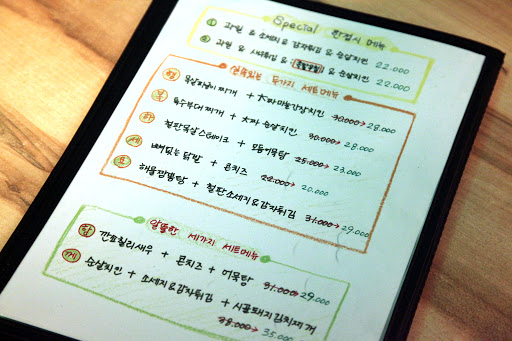 Special 한접시 메뉴
① 과일 & 소세지 & 감자튀김 & 순살치킨 22.000
② 과일 & 새우튀김 & & 순살치킨 22.000
실속있는 두가지 세트메뉴
행 찌개 + 大파마늘간장치킨 30.000→28.000
복 육수부대찌개 + 大파순살치킨 30.000→28.000
하 철판목살스테이크 + 모듬어묵탕 25.000→23.000
세 뼈없는 닭발 + 콘치즈 22.000→20.000
요 해물짬뽕탕 + 철판소세지&감자튀김 31.000→29.000
알뜰한 세가지 세트메뉴
함 깐쇼칠리새우 + 콘치즈 + 어묵탕 31.000→29.000
께 순살치킨 + 소세지&감자튀김 + 시골돼지김치찌개
38.000→35.000